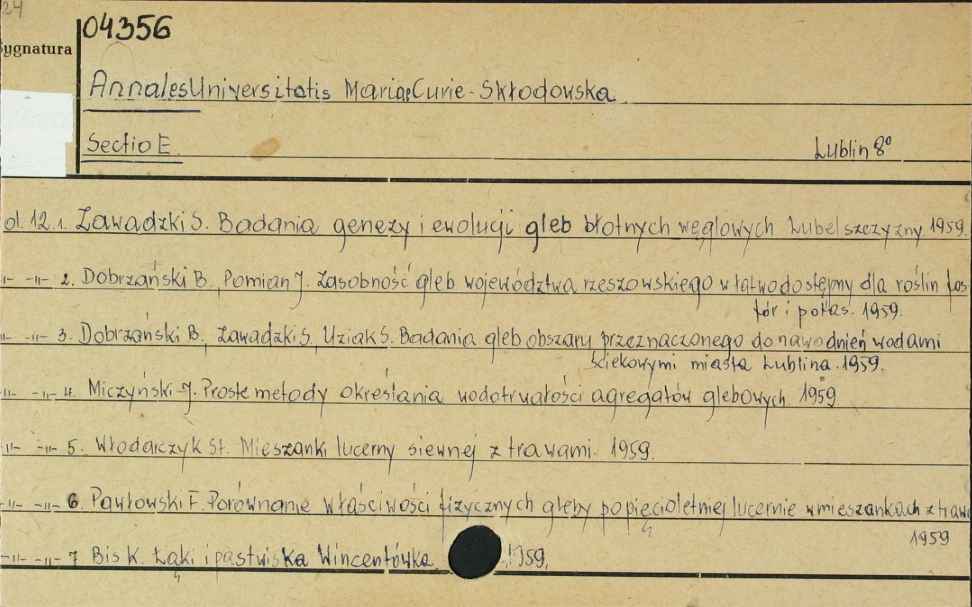 24
04356
Sygnatura
Annales Universitatis Mariae Curie-Skłodowska
Sectio E
Lublin 8°
ol. 12. 1. Zawadzki S. Badania genezy i ewolucji gleb błotnych węglowych Lubelszczyzny. 1959.
-ıı- -ıı- 2. Dobrzański B., Pomian J. Zasobność gleb województwa rzeszowskiego w łatwodostępny dla roślin fos-
fór i potas. 1959.
-ıı- -ıı- 3. Dobrzański B., Zawadzki S., Uziak S. Badania gleb obszaru przeznaczonego do nawodnień wodami
ściekowymi miasta Lublina. 1959.
-ıı- -ıı- 4. Miczyński J. Proste metody określania wodotrwałości agregatów glebowych 1959
-ıı- -ıı- 5. Włodarczyk St. Mieszanki lucerny siewnej z trawami. 1959.
-ıı- -ıı- 6. Pawłowski F. Porównanie właściwości fizycznych gleby po pięcioletniej lucernie w mieszankach z traw
1959
-ıı- -ıı- 7 Bis K. Łąki i pastwiska Wincentówka. 1959.